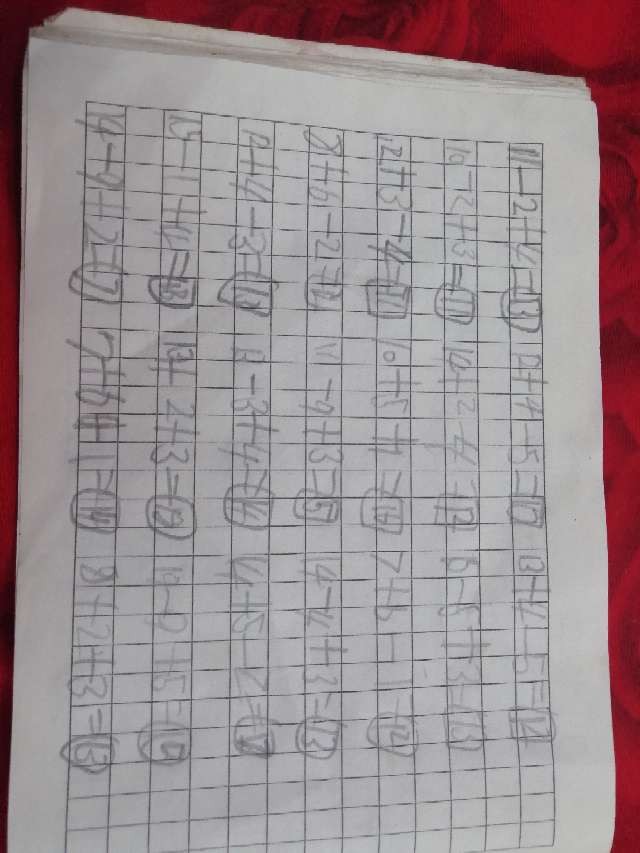 11-2+4=13 12+4-5=11 13+4-5=12
10-2+3=11 14+2-4=12 15-5+3=13
12+3-4=11 10+5-1=14 7+6-1=12
8+6-2=12 11-9+3=5 14-4+3=13
12+4-3=13 13-3+4=14 +5-2=
15-1+4=18 2+3=19 +5=15
14-9+2=7 7+6+1=14 8+2+3=13